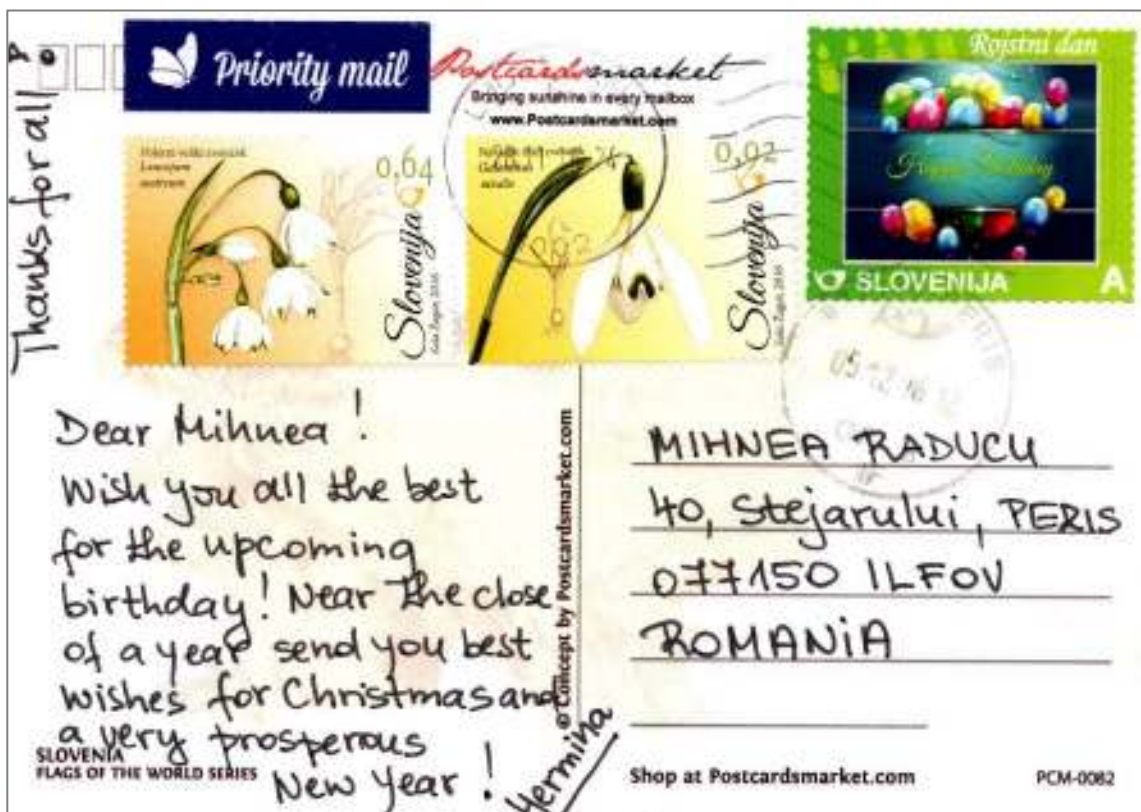 Thanks for all!
Priority mail
Postcardsmarket
Bringing sunshine in every mailbox
www.Postcardsmarket.com
0,64
Slovenija
0,02
Slovenija
Rojstni dan
Happy Birthday
SLOVENIJA A
Dear Mihnea!
Wish you all the best
for the upcoming
birthday! Near the close
of a year send you best
wishes for Christmas and
a very prosperous
New Year!
Hermina
SLOVENIA
FLAGS OF THE WORLD SERIES
© Concept by Postcardsmarket.com
MIHNEA RADUCU
40, Stejarului, PERIS
077150 ILFOV
ROMANiA
Shop at Postcardsmarket.com
PCM-0082